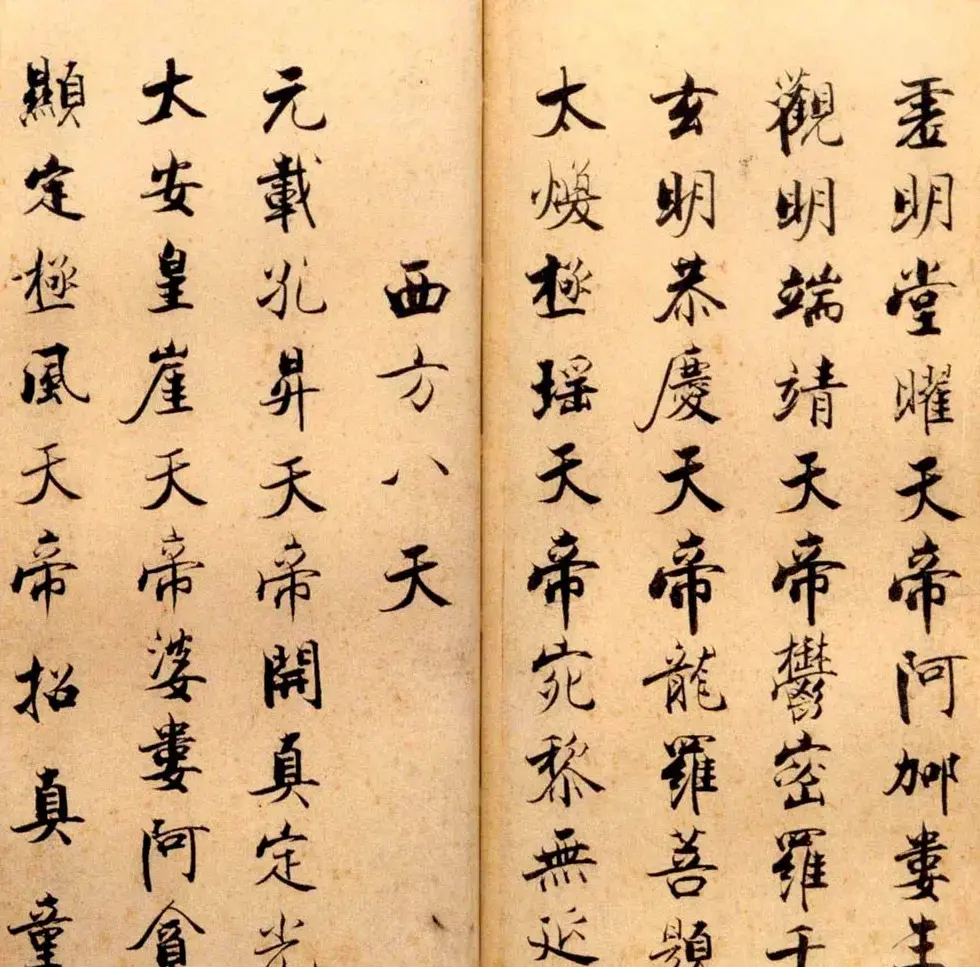 虛明堂曜天帝阿那婁生
觀明端靖天帝鬱密羅千
玄明恭慶天帝龍羅菩題
太煥極瑤天帝宛黎無延
西方八天
元載孔昇天帝開真定光
大安皇崖天帝婆婁阿貪
顯定極風天帝招真童